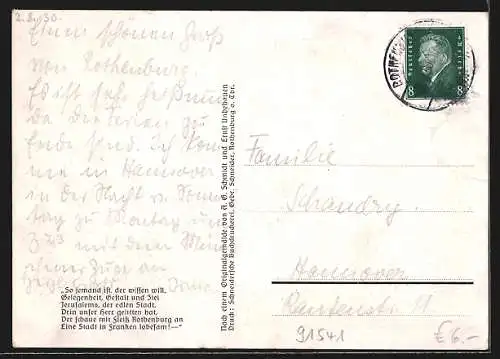 2.8.30.
Einen schönen Gruß
von Rothenburg.
Es ist sehr
da die Ferien zu
Ende sind. Ich kom
me in Hannover
in der Nacht v. Sonn
tag zu Montag um
mit dem Mün
chener Zuge an
„So jemand ist, der wissen will,
Gelegenheit, Gestalt und Ziel
Jerusalems, der edlen Stadt,
Drin unser Herr gelitten hat,
Der schaue mit Fleiß Rothenburg an
Eine Stadt in Franken lobesam!—“
Nach einem Originalgemälde von A. G. Schmidt und Ernst Unbehauen
Druck: Schneider'sche Buchdruckerei, Gebr. Schneider, Rothenburg o. Tbr.
ROTHEN
Deutsches Reich
8 8
Familie
Schandry
Hannover
Rautenstr. 11
91541
£ 6.-